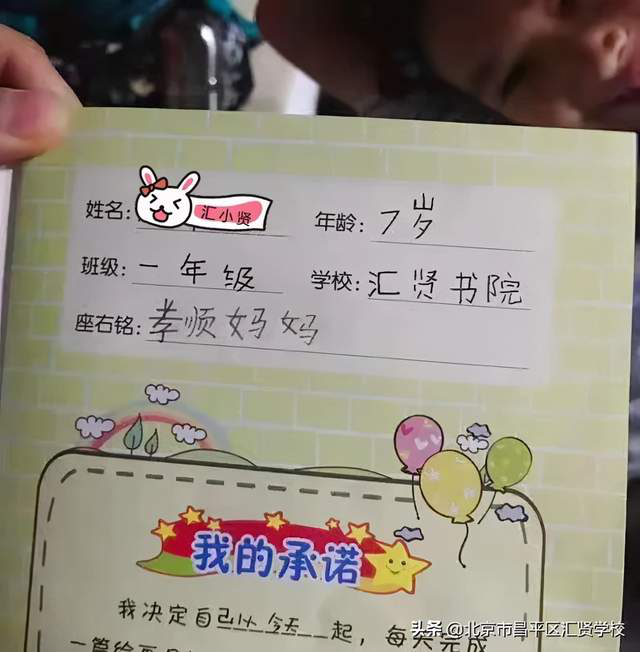 姓名: 汇小贤 年龄: 7岁
班级: 一年级 学校: 汇贤书院
座右铭: 孝顺妈妈
我的承诺
我决定自己从今天起，每天完成
头条 @北京市昌平区汇贤学校